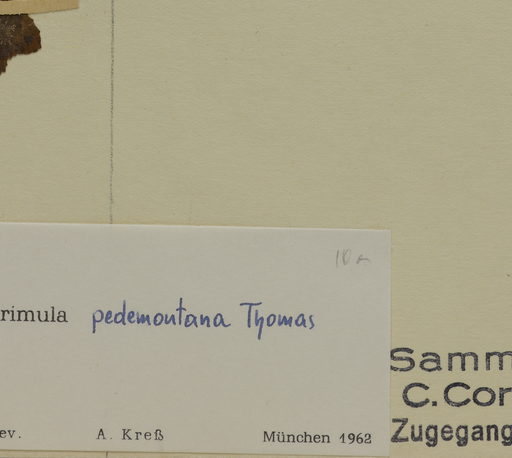 10a
rimula pedemontana Thomas
ev. A. Kreß München 1962
Samm
C.Cor
Zugegang